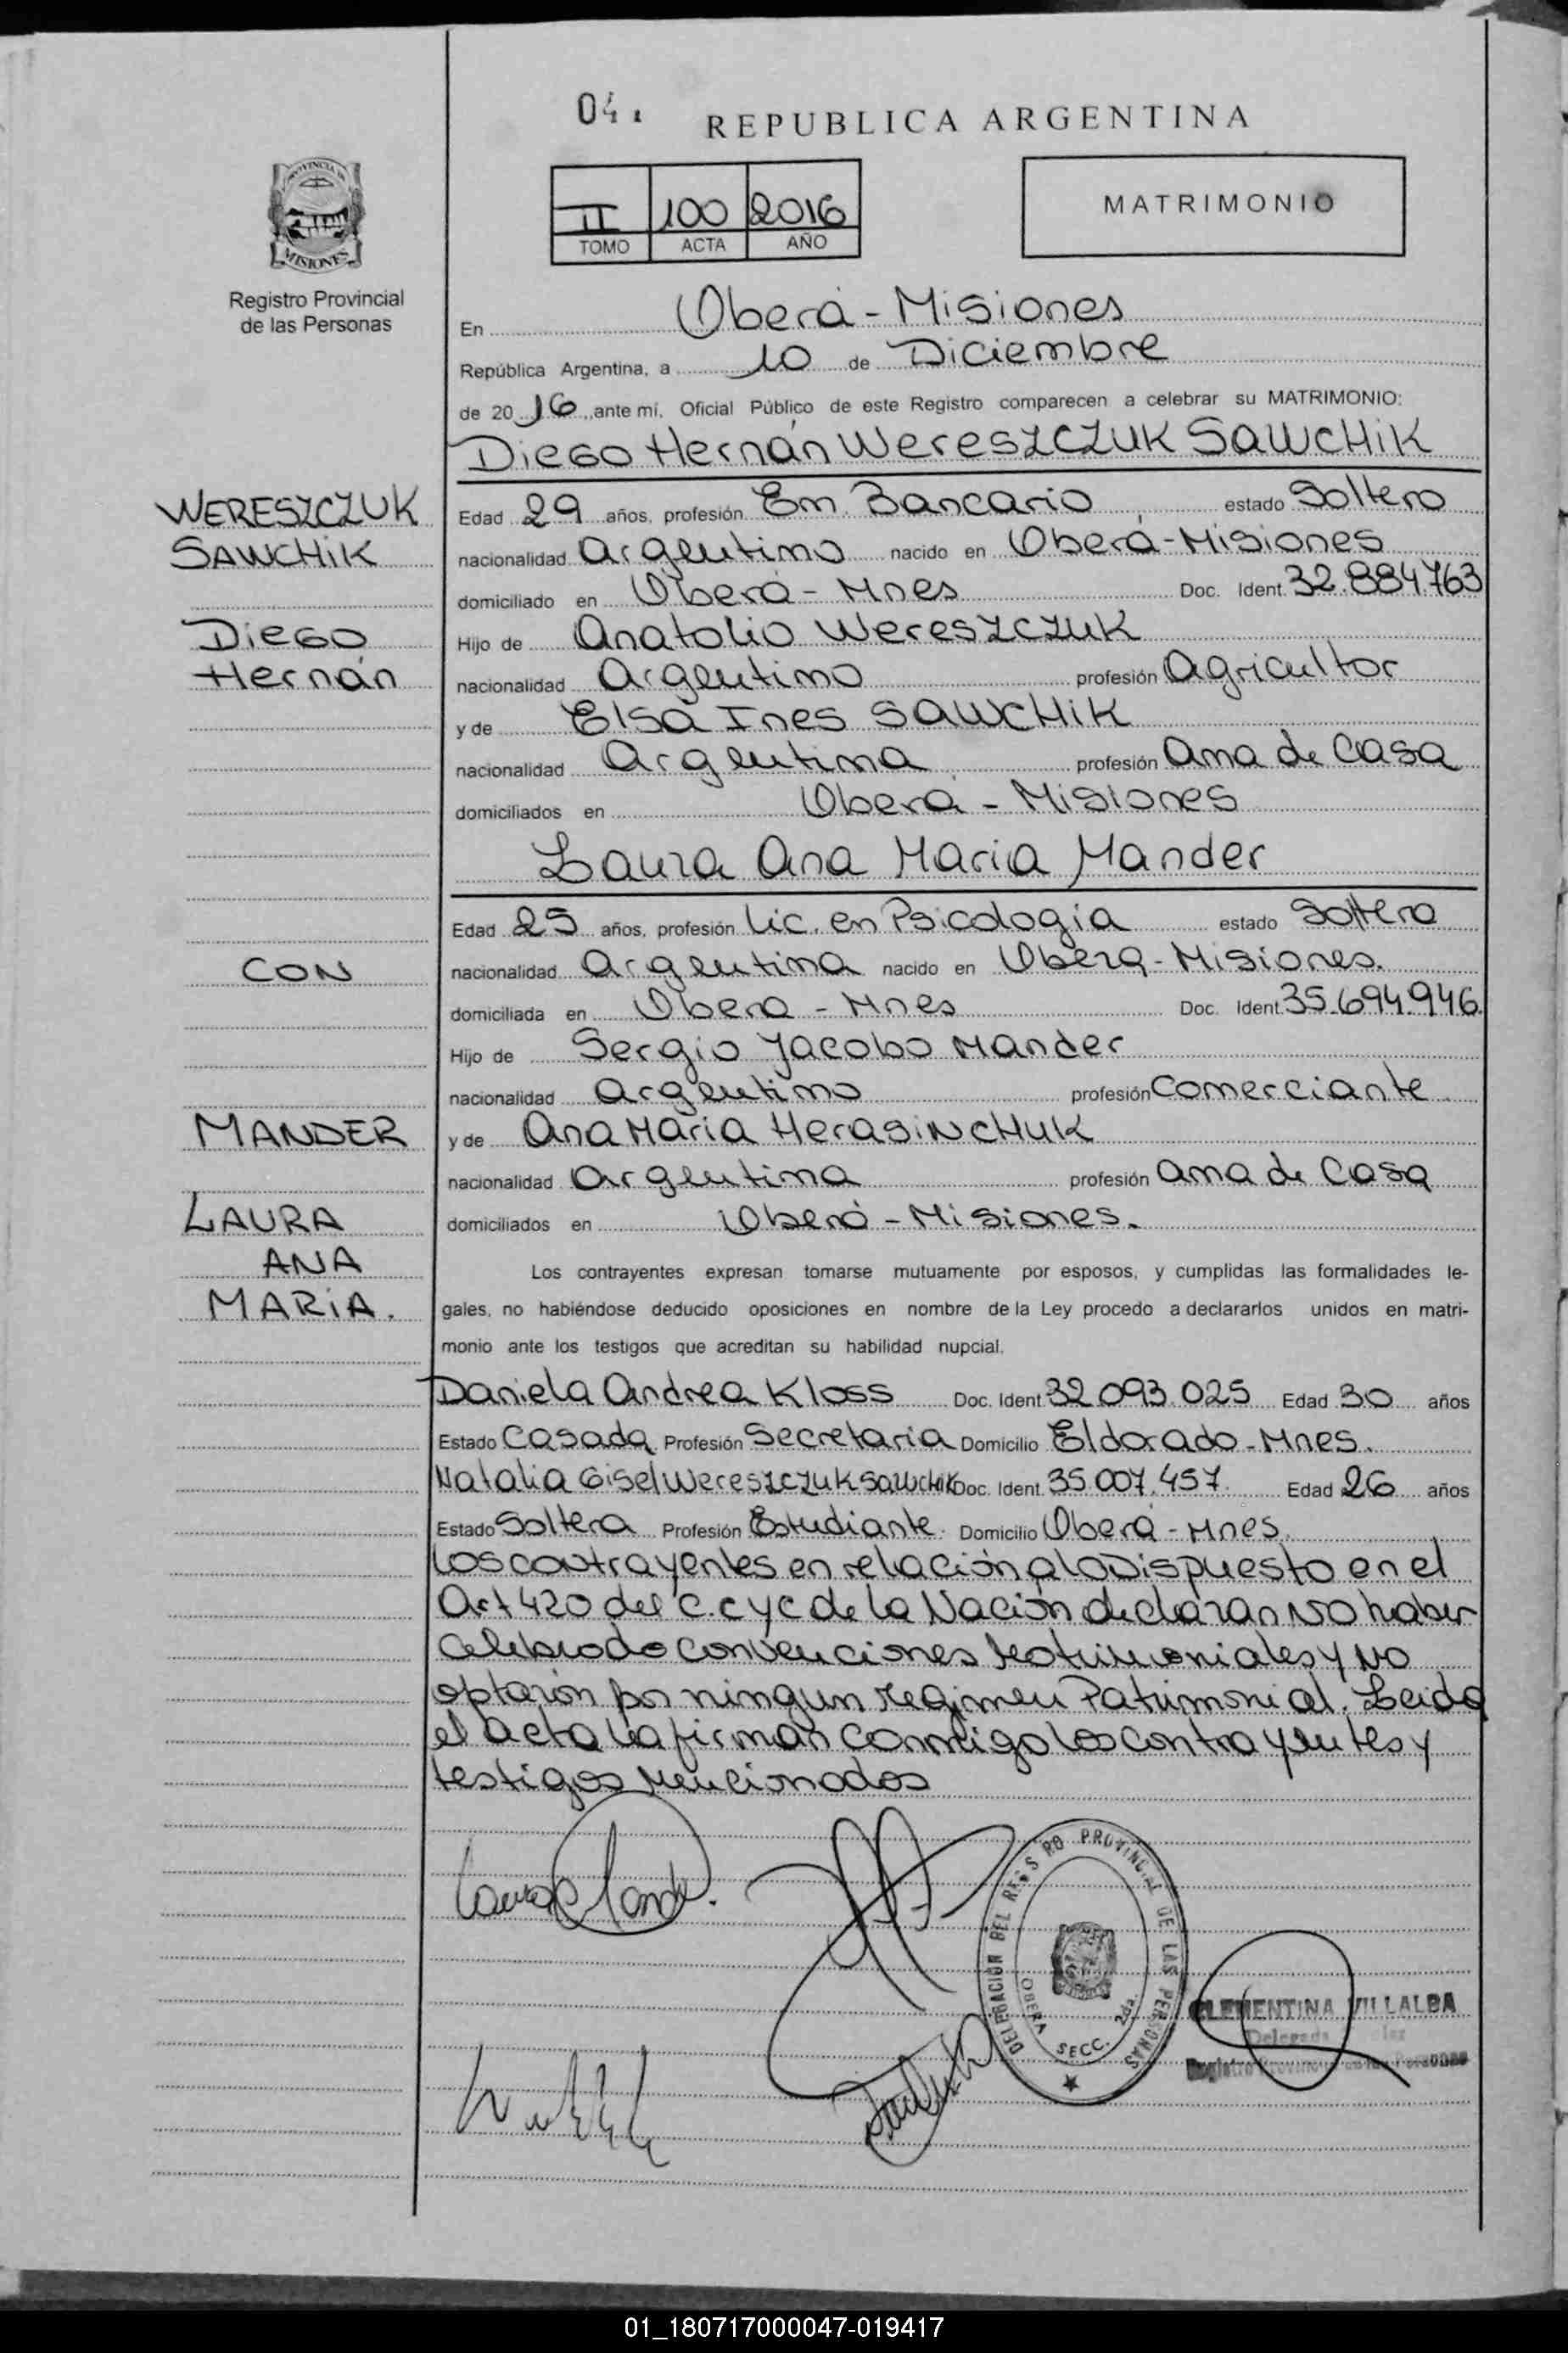 04.
REPUBLICA ARGENTINA
PROVINCIA DE
MISIONES
Registro Provincial
de las Personas
II 100 2016
TOMO ACTA AÑO
MATRIMONIO
En Oberá - Misiones
República Argentina, a 10 de Diciembre
de 20 16 ,ante mí, Oficial Público de este Registro comparecen a celebrar su MATRIMONIO:
Diego Hernán Wereszczuk Sawchik
WERESZCZUK
SAWCHIK
Diego
Hernán
Edad 29 años, profesión Em. Bancario estado Soltero
nacionalidad Argentino nacido en Oberá-Misiones
domiciliado en Oberá - Mnes Doc. Ident. 32.884.763
Hijo de Anatolio Wereszczuk
nacionalidad Argentino profesión Agricultor
y de Elsa Ines Sawchik
nacionalidad Argentina profesión Ama de Casa
domiciliados en Oberá - Misiones
Laura Ana Maria Mander
CON
MANDER
LAURA
ANA
MARIA.
Edad 25 años, profesión Lic. en Psicología estado Soltera
nacionalidad Argentina nacido en Obera-Misiones.
domiciliada en Obera - Mnes Doc. Ident. 35.694.946.
Hijo de Sergio Jacobo Mander
nacionalidad Argentino profesión Comerciante
y de Ana Maria Herasinchuk
nacionalidad Argentina profesión Ama de Casa
domiciliados en Oberá - Misiones.
Los contrayentes expresan tomarse mutuamente por esposos, y cumplidas las formalidades le-
gales, no habiéndose deducido oposiciones en nombre de la Ley procedo a declararlos unidos en matri-
monio ante los testigos que acreditan su habilidad nupcial.
Daniela Andrea Kloss Doc. Ident. 32 093.025 Edad 30 años
Estado Casada Profesión Secretaria Domicilio Eldorado-Mnes.
Natalia Gisel Wereszczuk Sawchik Doc. Ident. 35.007.457. Edad 26 años
Estado Soltera Profesión Estudiante. Domicilio Oberá - Mnes.
Los contrayentes en relación a lo Dispuesto en el
Art 420 del C.C y C de la Nación declaran NO haber
celebrado convenciones Matrimoniales y NO
optarón por ningun regimen Patrimonial. Leida
el acta la firman conmigo los contrayentes y
testigos mencionados
DELEGACION DEL REGISTRO PROVINCIAL DE LAS PERSONAS
OBERA SECC. 2da
CLEMENTINA VILLALBA
Delegada
Registro Provincial de las Personas
01_180717000047-019417